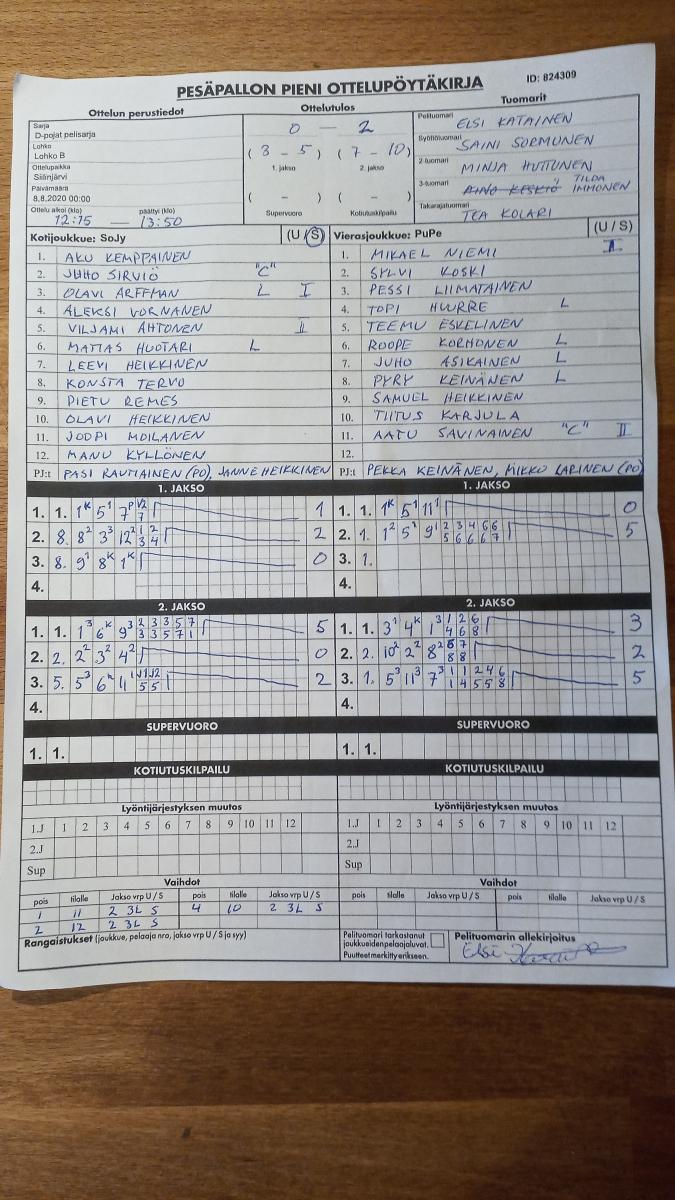 PESÄPALLON PIENI OTTELUPÖYTÄKIRJA
ID: 824309
Ottelun perustiedot
Sarja
D-pojat pelisarja
Lohko
Lohko B
Ottelupaikka
Siilinjärvi
Päivämäärä
8.8.2020 00:00
Ottelu alkoi (klo) päättyi (klo)
12:15 — 13:50
Ottelutulos
0 — 2
( 3 - 5 ) ( 7 - 10 )
1. jakso 2. jakso
( - ) ( - )
Supervuoro Kotiutuskilpailu
Tuomarit
Pelituomari ELSI KATAINEN
Syöttötuomari SAINI SORMUNEN
2-tuomari MINJA HUTTUNEN
3-tuomari TILDA IMMONEN
Takarajatuomari TEA KOLARI
Kotijoukkue: SoJy (U / S)
1. AKU KEMPPAINEN
2. JUHO SIRVIÖ "C"
3. OLAVI ARFFMAN L I
4. ALEKSI VORNANEN
5. VILJAMI AHTONEN II
6. MATIAS HUOTARI L
7. LEEVI HEIKKINEN
8. KONSTA TERVO
9. PIETU REMES
10. OLAVI HEIKKINEN
11. JOOPI MOILANEN
12. MANU KYLLÖNEN
PJ:t PASI RAUTIAINEN (PO), JANNE HEIKKINEN
Vierasjoukkue: PuPe (U / S)
1. MIKAEL NIEMI I
2. SYLVI KOSKI
3. PESSI LIIMATAINEN
4. TOPI HUURRE L
5. TEEMU ESKELINEN
6. ROOPE KORHONEN L
7. JUHO ASIKAINEN L
8. PYRY KEINÄNEN L
9. SAMUEL HEIKKINEN
10. TIITUS KARJULA
11. AATU SAVINAINEN "C" II
12.
PJ:t PEKKA KEINÄNEN, MIKKO LARINEN (PO)
1. JAKSO
1. 1. 1K 51 7P 1/2 7 1
2. 8. 82 33 122 1 2 3 4 2
3. 8. 91 8K 1K 0
4.
1. JAKSO
1. 1. 1K 51 111 0
2. 1. 12 51 91 2 3 4 6 6 5 6 6 6 7 5
3. 1.
4.
2. JAKSO
1. 1. 13 6K 93 2 3 3 5 7 3 3 5 7 1 5
2. 2. 22 32 42 0
3. 5. 53 6K 2
4.
2. JAKSO
1. 1. 31 4K 13 1 2 6 4 6 8 3
2. 2. 102 22 82 2
3. 1. 53 113 73 1 1 2 4 6 1 4 5 5 8 5
4.
SUPERVUORO
1. 1.
SUPERVUORO
1. 1.
KOTIUTUSKILPAILU
KOTIUTUSKILPAILU
Lyöntijärjestyksen muutos
1.J 1 2 3 4 5 6 7 8 9 10 11 12
2.J
Sup
Lyöntijärjestyksen muutos
1.J 1 2 3 4 5 6 7 8 9 10 11 12
2.J
Sup
Vaihdot
pois tilalle Jakso vrp U / S pois tilalle Jakso vrp U / S
1 11 2 3L S 4 10 2 3L S
2 12 2 3L S
Vaihdot
pois tilalle Jakso vrp U / S pois tilalle Jakso vrp U / S
Rangaistukset (joukkue, pelaaja nro, jakso vrp U / S ja syy)
Pelituomari tarkastanut
joukkueidenpelaajaluvat.
Puutteet merkitty erikseen.
Pelituomarin allekirjoitus
Elsi